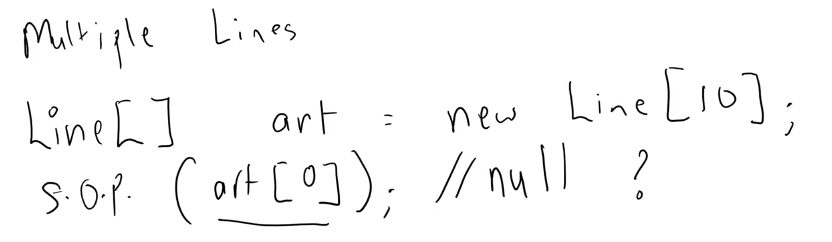 Multiple Lines
Line[] art = new Line[10];
S.O.P. (art[0]); //null ?